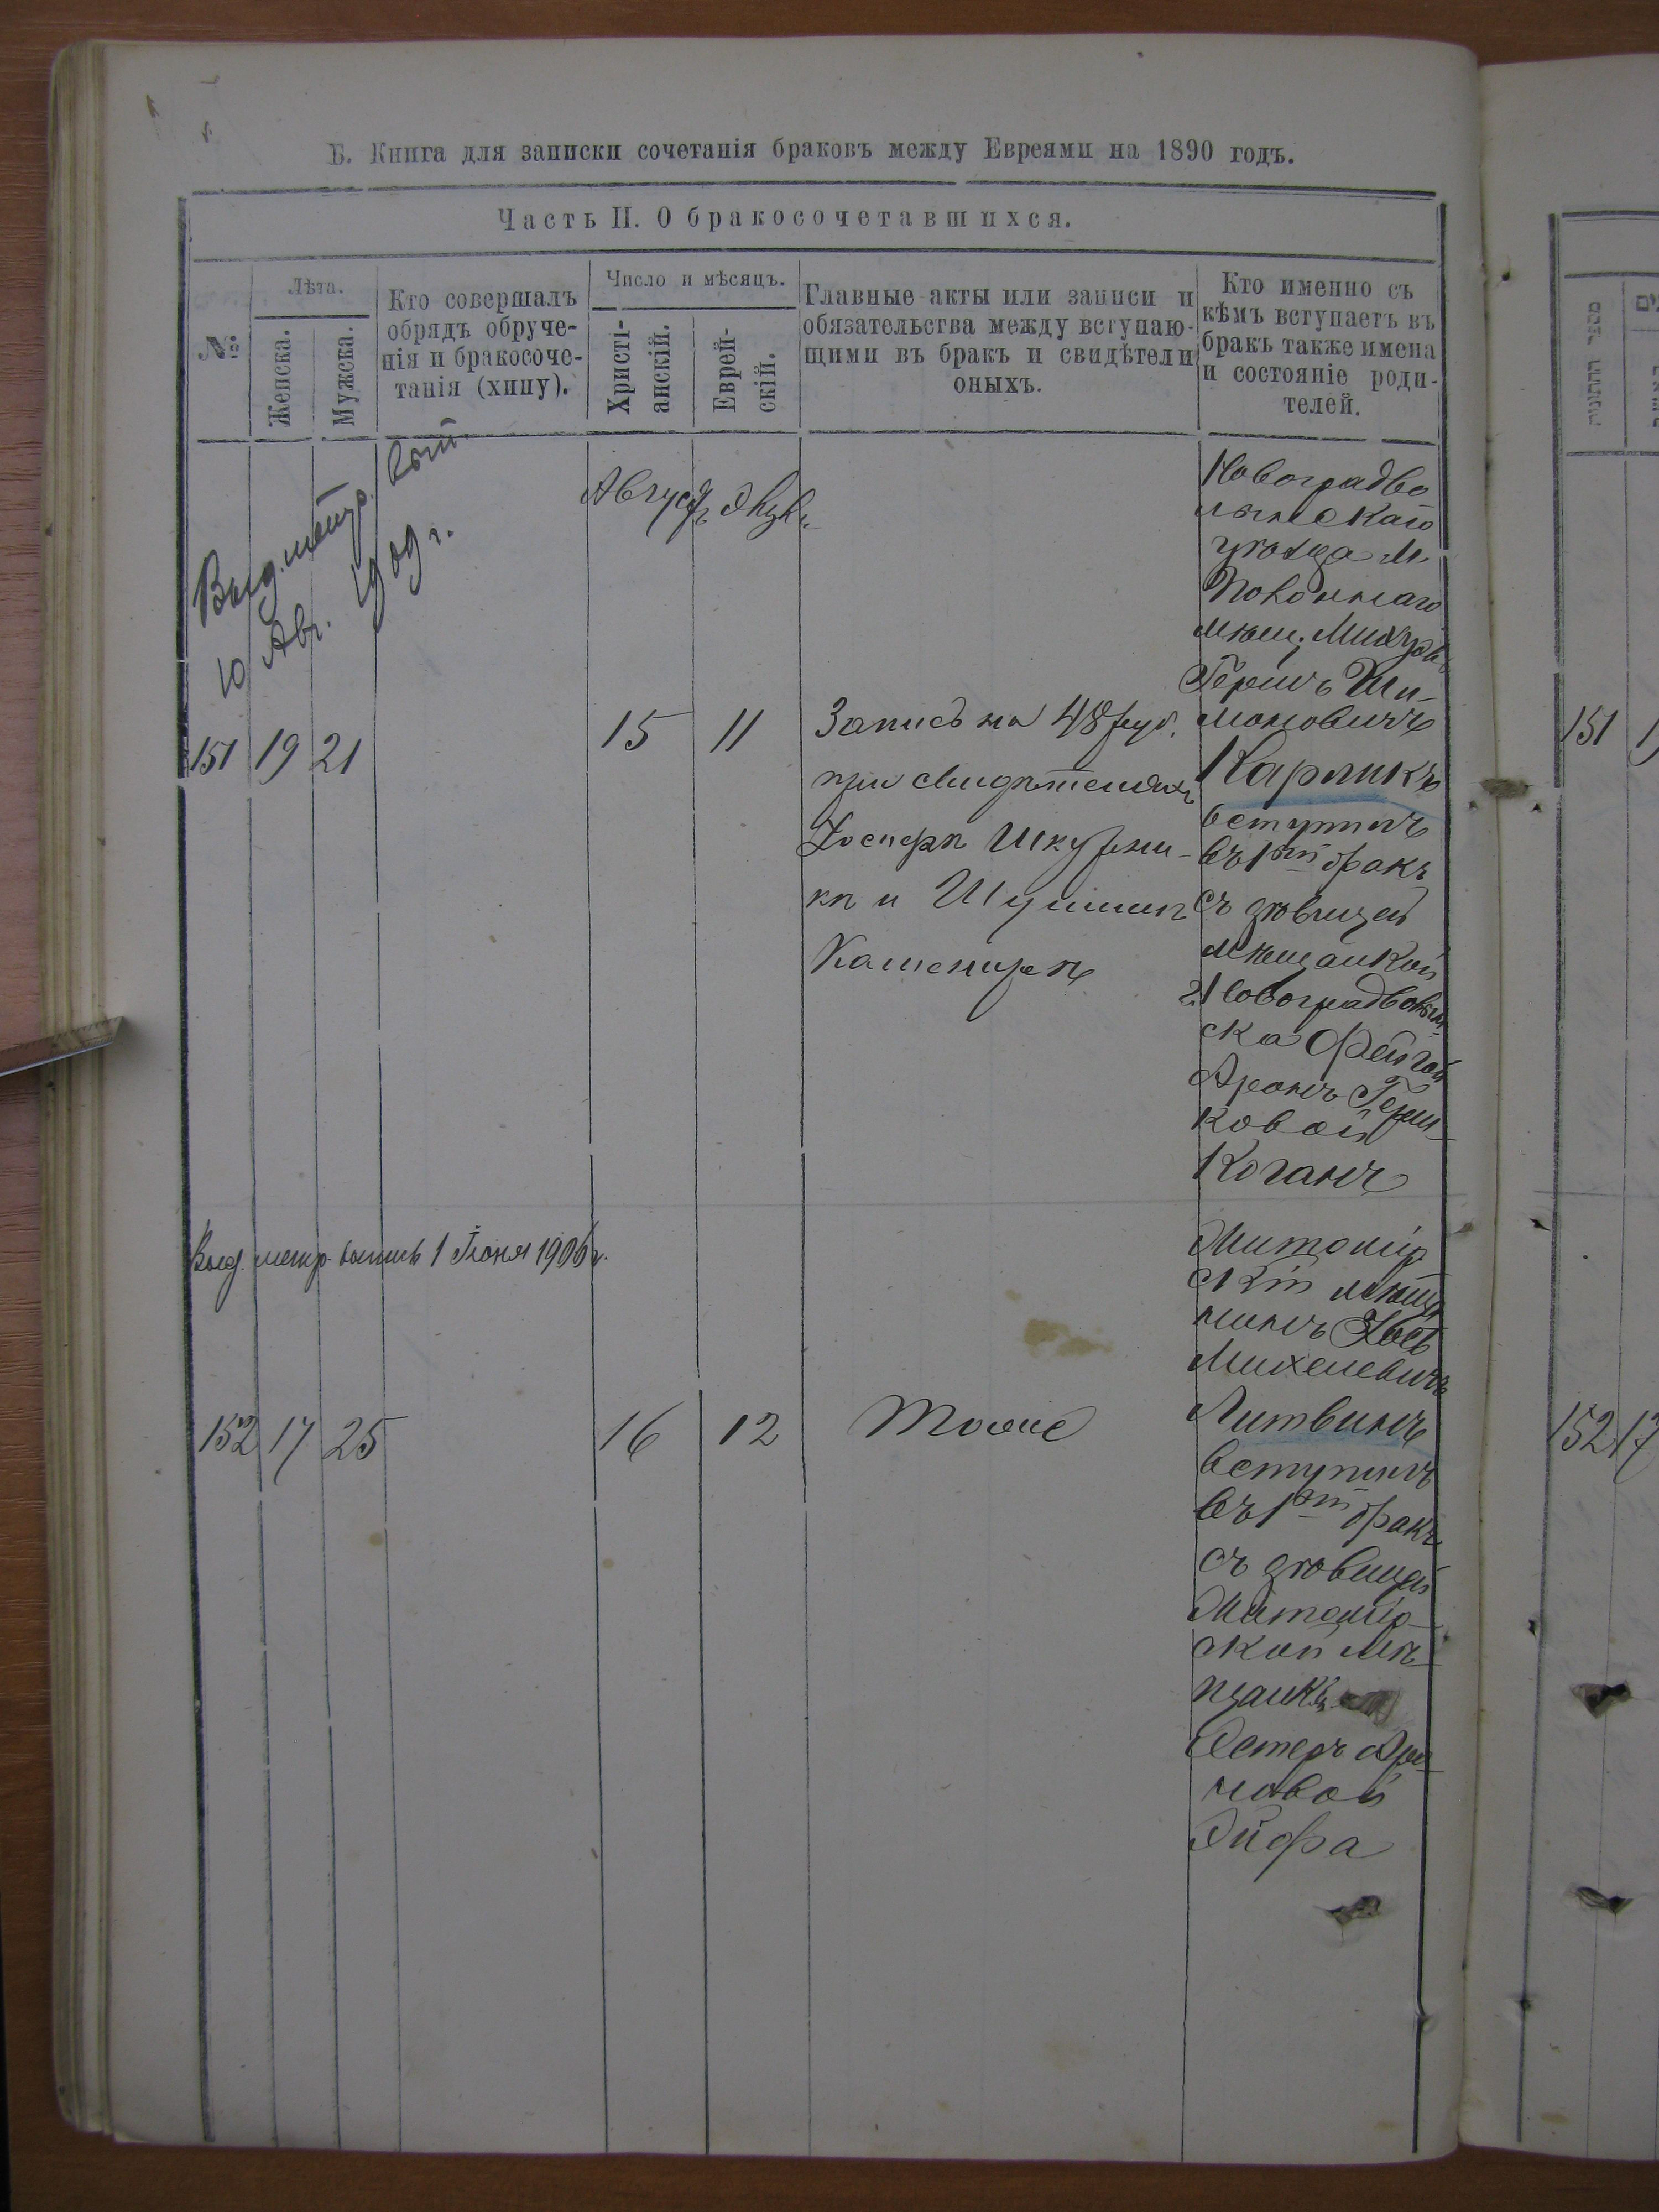 Б. Книга для записки сочетанія браковъ между Евреями на 1890 годъ.
Часть II. О бракосочетавшихся.
№
Лѣта.
Женска.
Мужска.
Кто совершалъ
обрядъ обруче-
нія и бракосоче-
танія (хипу).
Число и мѣсяцъ.
Христі-
анскій.
Еврей-
скій.
Главные акты или записи и
обязательства между вступаю-
щими въ бракъ и свидѣтели
оныхъ.
Кто именно съ
кѣмъ вступаетъ въ
бракъ также имена
и состояніе роди-
телей.
Выд. метр. вып.
10 Авг. 1909 г.
Августъ
151 19 21
15 11
Запись на 48 руб.
при свидѣтеляхъ
Іосифѣ Шкурни-
кѣ и
Новоградво
лынскаго
уѣзда м.
Полоннаго
мѣщ.
Гершъ Ши-
моновичъ
Карликъ
вступилъ
въ 1ый бракъ
съ дѣвицей
мѣщанкой
г. Новоградволын-
ска Фейгой
Аронъ Герш-
ковой
Коганъ
Выд. метр. выпись 1 Іюня 1906 г.
152 17 25
16 12
Тоже
Житомір
скій мѣща
нинъ
Михелевичъ
Литвинъ
вступилъ
въ 1ый бракъ
съ дѣвицей
Житомір-
ской мѣ-
щанк.
Эстеръ Аро-
новой
Эйфа
151
152 17